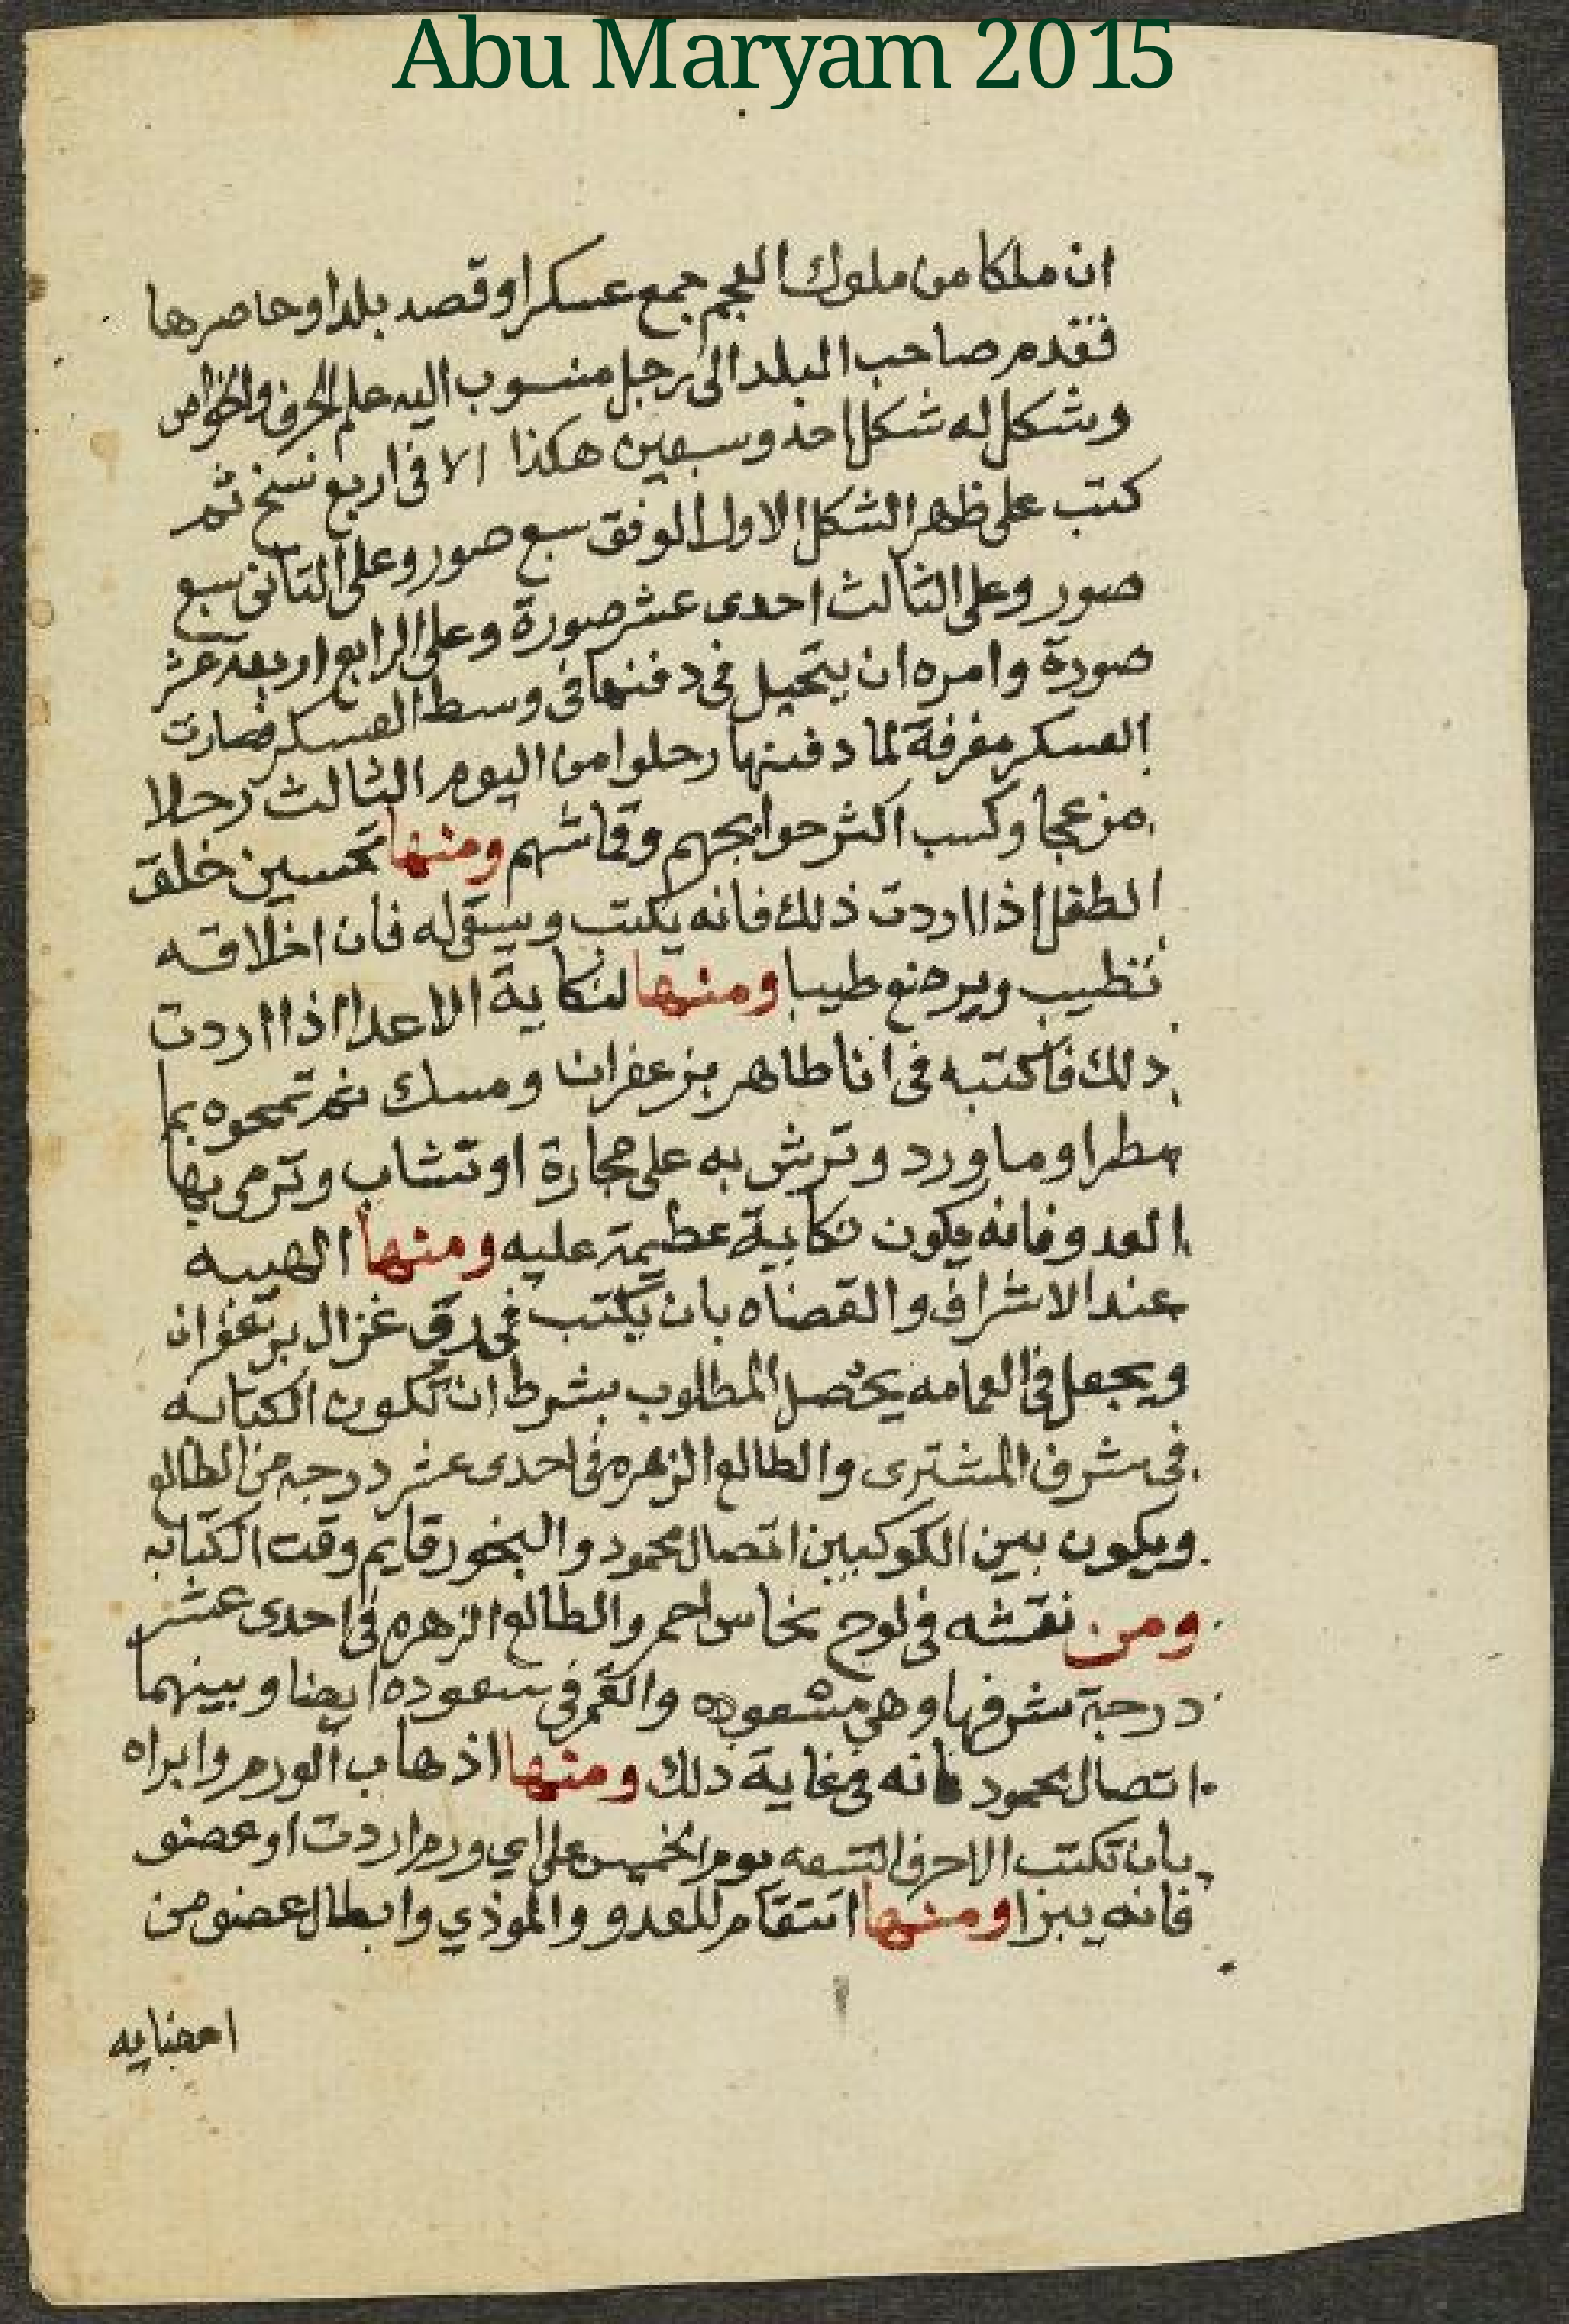 Abu Maryam 2015
ان ملكا من ملوك العجم جمع عسكرا وقصد بلدا وحاصرها
فقدم صاحب البلد الى رجل منسوب اليه علم الحرف والخواص
وشكل له شكل احد وسبعين هكذا الا فى اربع نسخ ثم
كتب على ظهر الشكل الاول الوفق سبع صور وعلى الثانى سبع
صور وعلى الثالث احدى عشر صورة وعلى الرابع اربعة عشر
صورة وامره ان يتحيل فى دفنها فى وسط العسكر فصارت
العسكر مفرقة لما دفنها رحلوا من اليوم الثالث رحلا
مزعجا وكسب اكثر حوايجهم وقماشهم ومنها تحسين خلق
الطفل اذا اردت ذلك فانه يكتب ويسقى له فان اخلاقه
تطيب ويرضع طيبا ومنها لنكاية الاعدا اذا اردت
ذلك فاكتبه فى انا طاهر بزعفران ومسك ثم تمحوه بما
مطر او ما ورد وترش به على حجارة او نشاب وترمى بها
العدو فانه يكون نكاية عظيمة عليه ومنها الهيبه
عند الاشراف والقضاه بان يكتب فى رق غزال بزعفران
ويجعل فى العمامه يحصل المطلوب بشرط ان تكون الكتابه
فى شرف المشترى والطالع الزهره فى احدى عشر درجه من الطالع
ويكون بين الكوكبين اتصال محمود والبخور قايم وقت الكتابه
ومن نقشه فى لوح نحاس احمر والطالع الزهره فى احدى عشر
درجة شرفها وهى مسعوده والقمر فى سعوده ايضا وبينهما
اتصال محمود فانه فى غاية ذلك ومنها اذهاب الورم وابراه
بان تكتب الاحرف التسعه يوم الخميس على اي ورم اردت او عضو
فانه يبرا ومنها انتقام للعدو والموذي وابطال عضو من
اعضايه